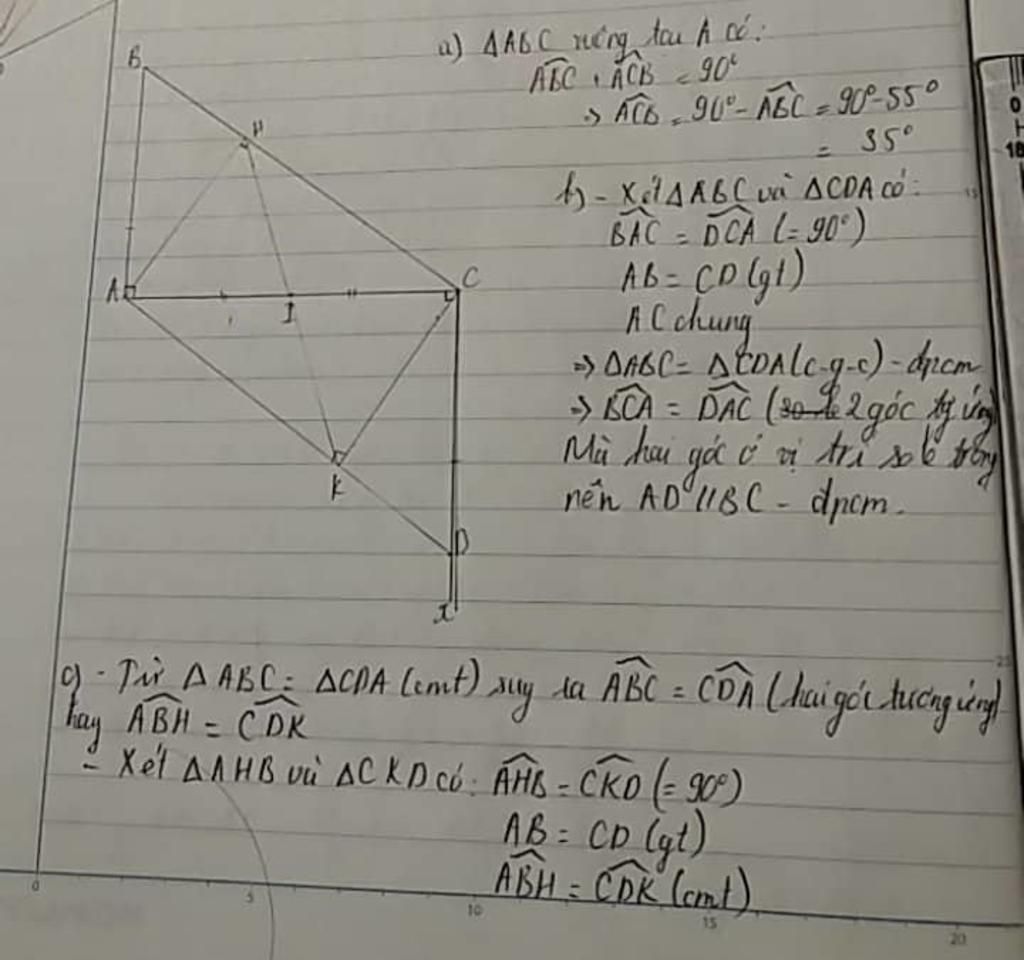 a) ΔABC vuông tại A có:
ABC + ACB = 90°
=> ACB = 90° - ABC = 90° - 55°
= 35°
b) - Xét ΔABC và ΔCDA có:
BAC = DCA (= 90°)
AB = CD (gt)
AC chung
=> ΔABC = ΔCDA (c-g-c) - đpcm
=> BCA = DAC (2 góc tg ứng)
Mà hai góc ở vị trí so le trong
nên AD // BC - đpcm.
B
H
A
I
C
K
D
x
c) - Từ ΔABC = ΔCDA (cmt) suy ra ABC = CDA (hai góc tương ứng)
hay ABH = CDK
- Xét ΔAHB và ΔCKD có: AHB = CKD (= 90°)
AB = CD (gt)
ABH = CDK (cmt)
0
5
10
15
20